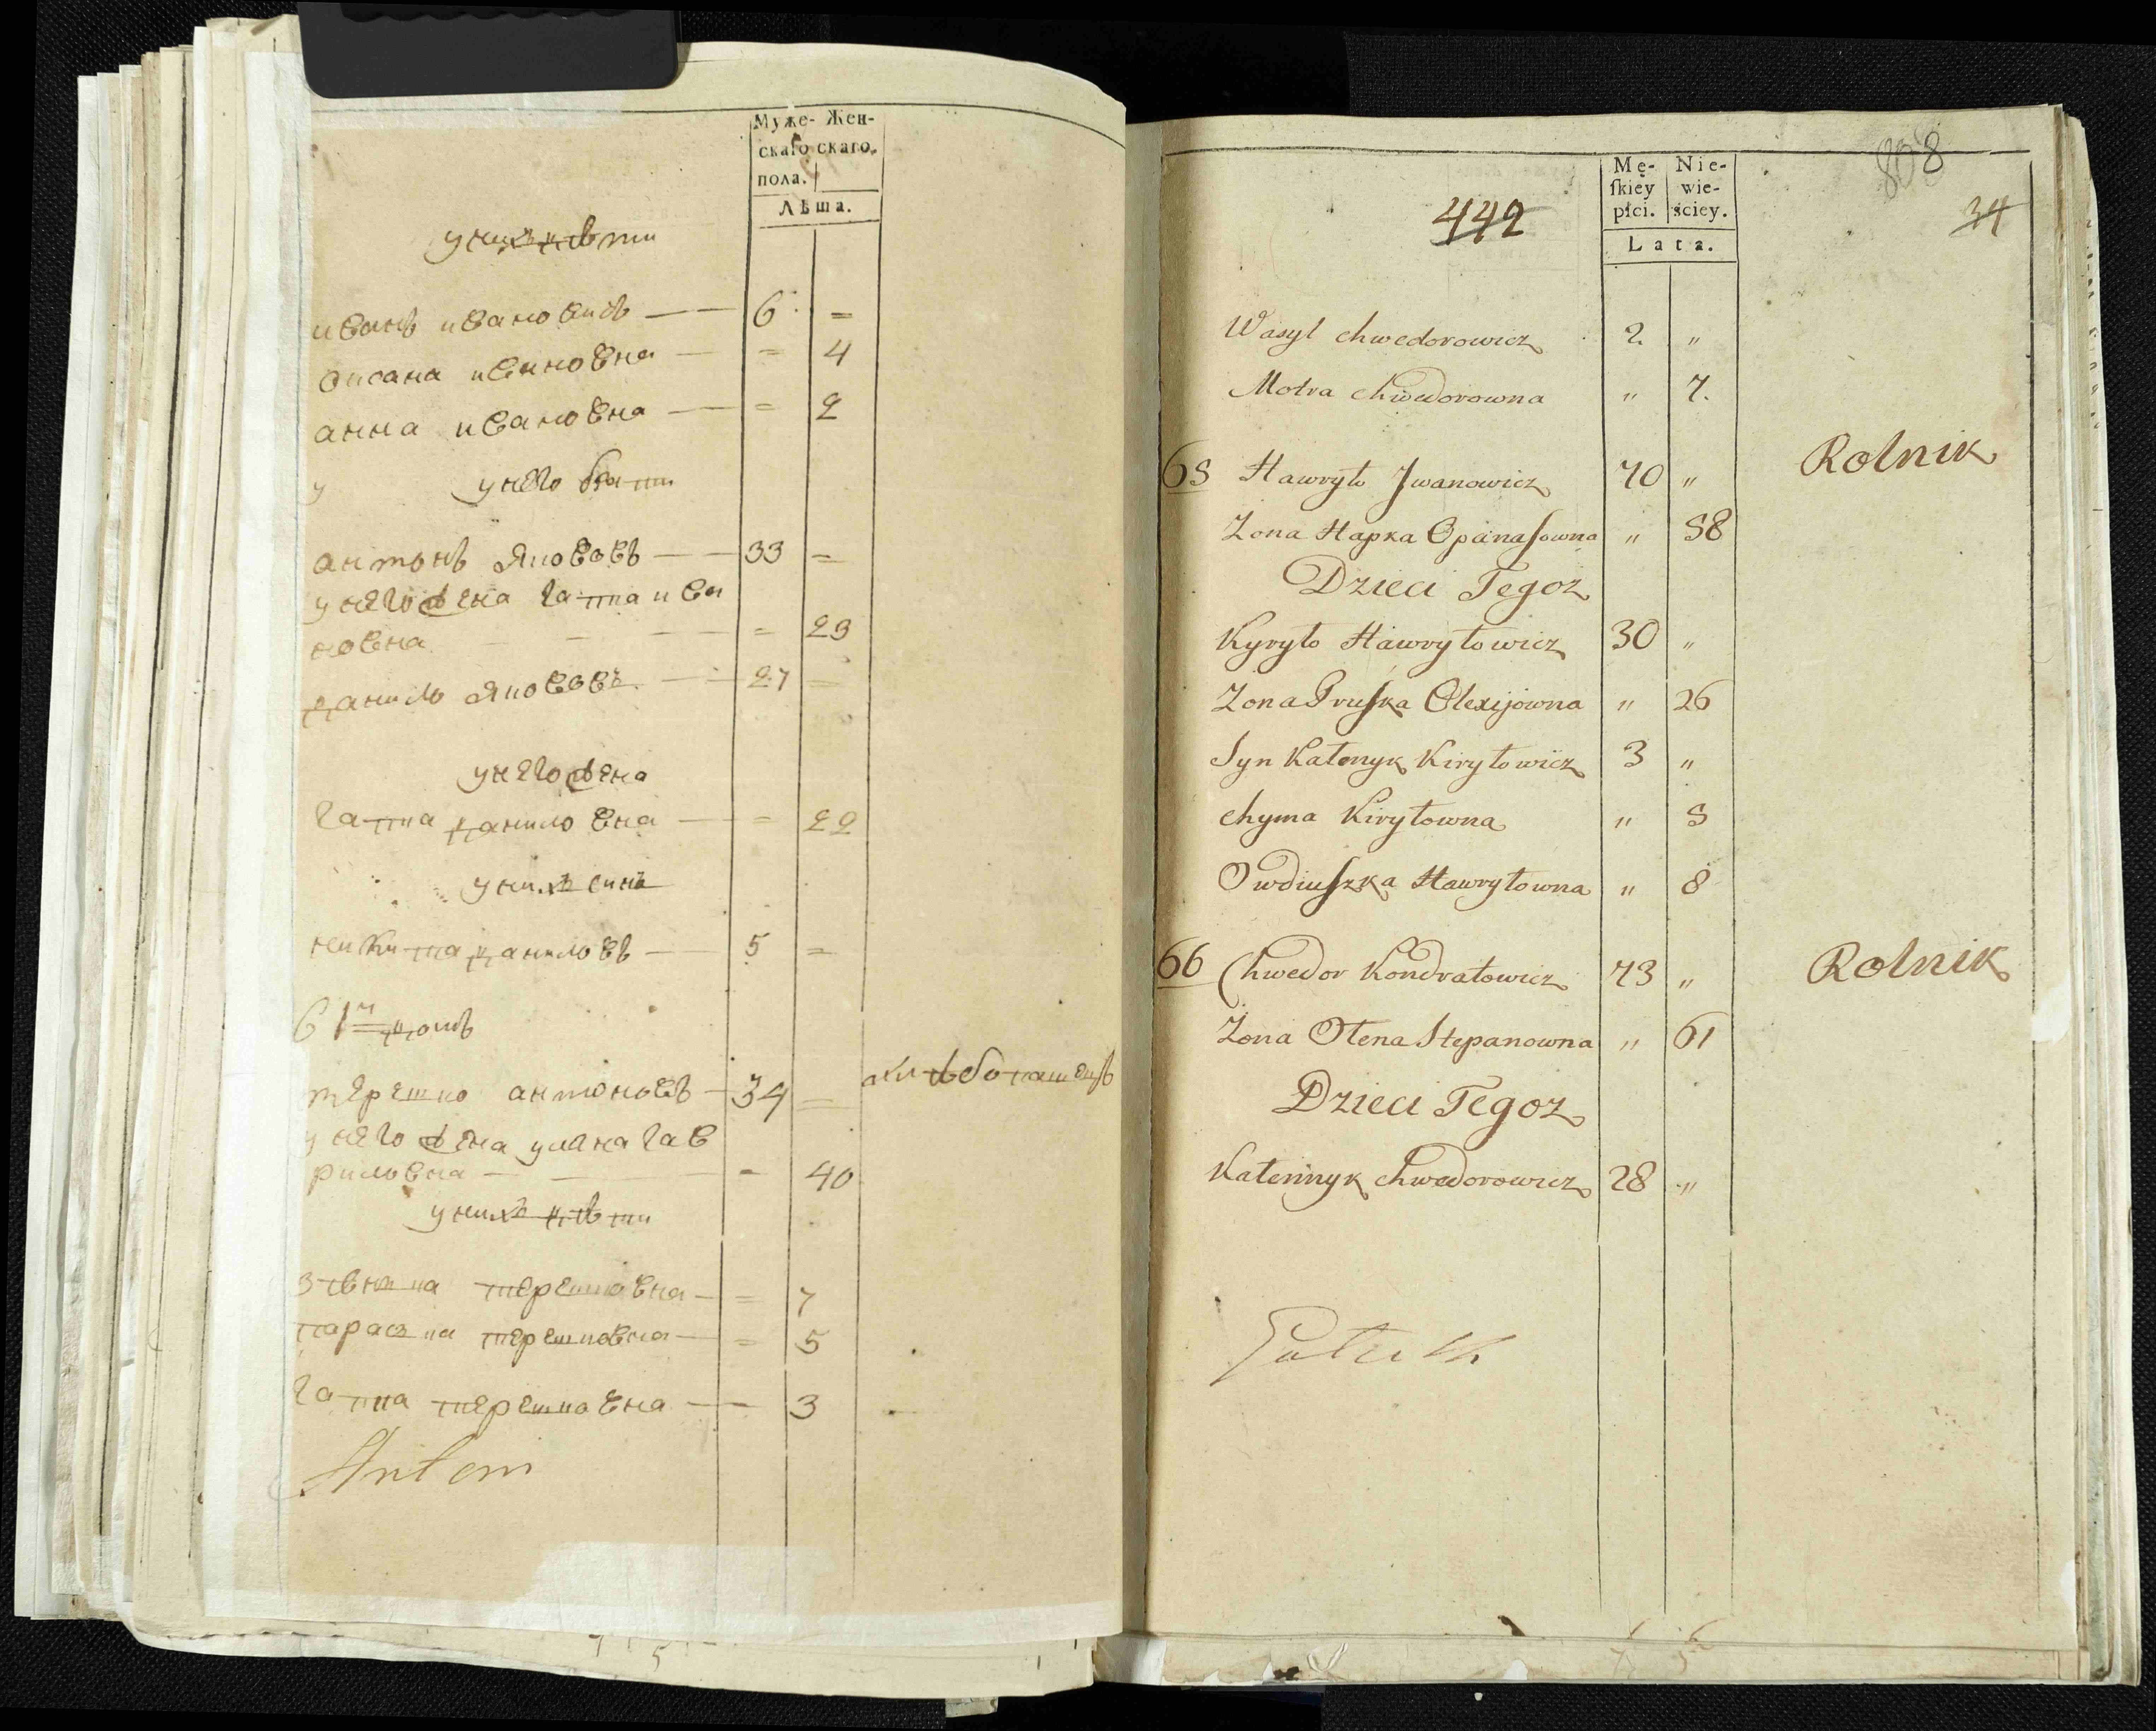 Муже- Жен-
скаго скаго.
пола.
Лѣта.
у нихъ дѣти
иванъ ивановичъ — 6 =
оксана ивановна — = 4
анна ивановна — = 2
у
у него брати
антонъ яковевъ — 33 =
у него жена гапка ива
новна — = 23
данило яковевъ — 27 =
у него жена
гапка данило вна — = 22
у нихъ синъ
никита даниловъ — 5 =
61й домъ
терешко антоневъ — 34 = хлѣбопашецъ
у него жена уляна гав
риловна — = 40
у нихъ дѣти
зѣнька терешковна — = 7
параска терешковна — = 5
гапка терешковна — — 3
Antoni
808
Mę- Nie-
ſkiey wie-
płci. ściey.
442
34
Lata.
Wasyl Chwedorowicz 2 "
Motra Chwedorowna " 7.
65 Hawryło Jwanowicz 70 " Rolnik
Zona Hapka Opanaſowna " 58
Dzieci Tegoz
Kyryło Hawryłowicz 30 "
Zona Pruſka Olexijowna " 26
Syn Katenyk Kiryłowicz 3 "
Chyma Kiryłowna " 5
Owdiuſzka Hawryłowna " 8
66 Chwedor Kondratowicz 73 " Rolnik
Żona Ołena Stepanowna " 61
Dzieci Tegoz
Katerinyk Chwedorowicz 28 "